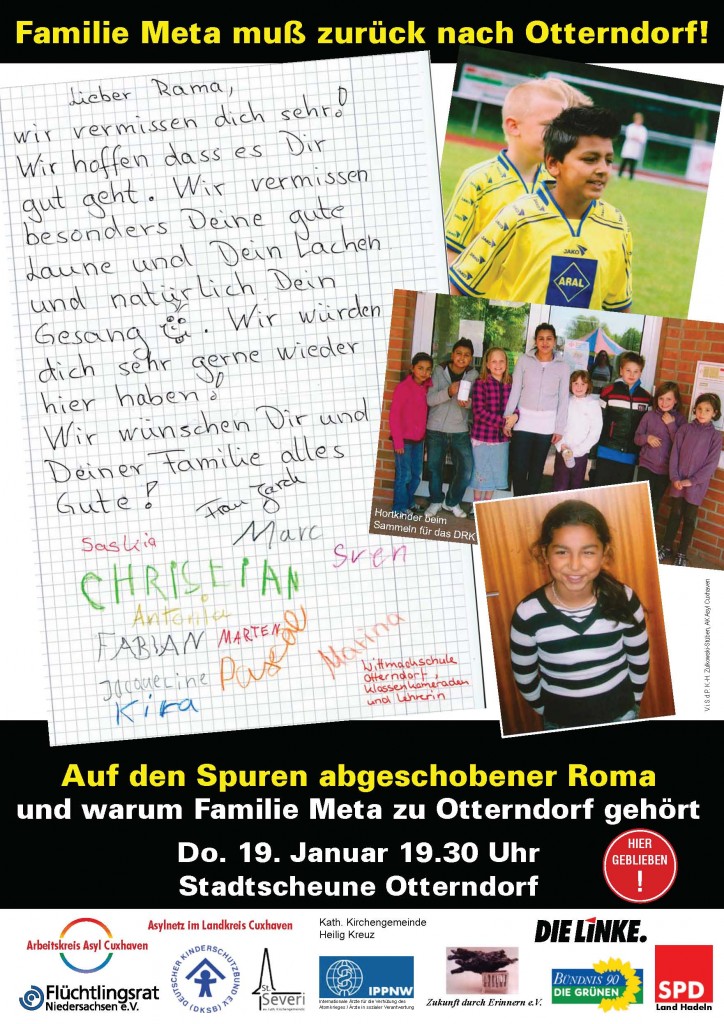 Familie Meta muß zurück nach Otterndorf!
Lieber Rama,
wir vermissen dich sehr!
Wir hoffen dass es Dir
gut geht. Wir vermissen
besonders Deine gute
Laune und Dein Lachen
und natürlich Dein
Gesang. Wir würden
dich sehr gerne wieder
hier haben!
Wir wünschen Dir und
Deiner Familie alles
Gute!
Frau Jarck
Saskia
Marc
Sven
CHRISTIAN
Antonia
FABIAN
MARTEN
Pascal
Marina
Jacqueline
Kira
Wittmackschule
Otterndorf,
Klassenkameraden
und Lehrerin
JAKO
ARAL
Hortkinder beim
Sammeln für das DRK
Auf den Spuren abgeschobener Roma
und warum Familie Meta zu Otterndorf gehört
Do. 19. Januar 19.30 Uhr
Stadtscheune Otterndorf
HIER
GEBLIEBEN
!
Arbeitskreis Asyl Cuxhaven
Asylnetz im Landkreis Cuxhaven
Kath. Kirchengemeinde
Heilig Kreuz
DIE LINKE.
Flüchtlingsrat
Niedersachsen e.V.
DEUTSCHER KINDERSCHUTZBUND E.V.
(DKSB)
St.
Severi
IPPNW
Internationale Ärzte für die Verhütung des
Atomkrieges / Ärzte in sozialer Verantwortung
Zukunft durch Erinnern e.V.
BÜNDNIS 90
DIE GRÜNEN
SPD
Land Hadeln